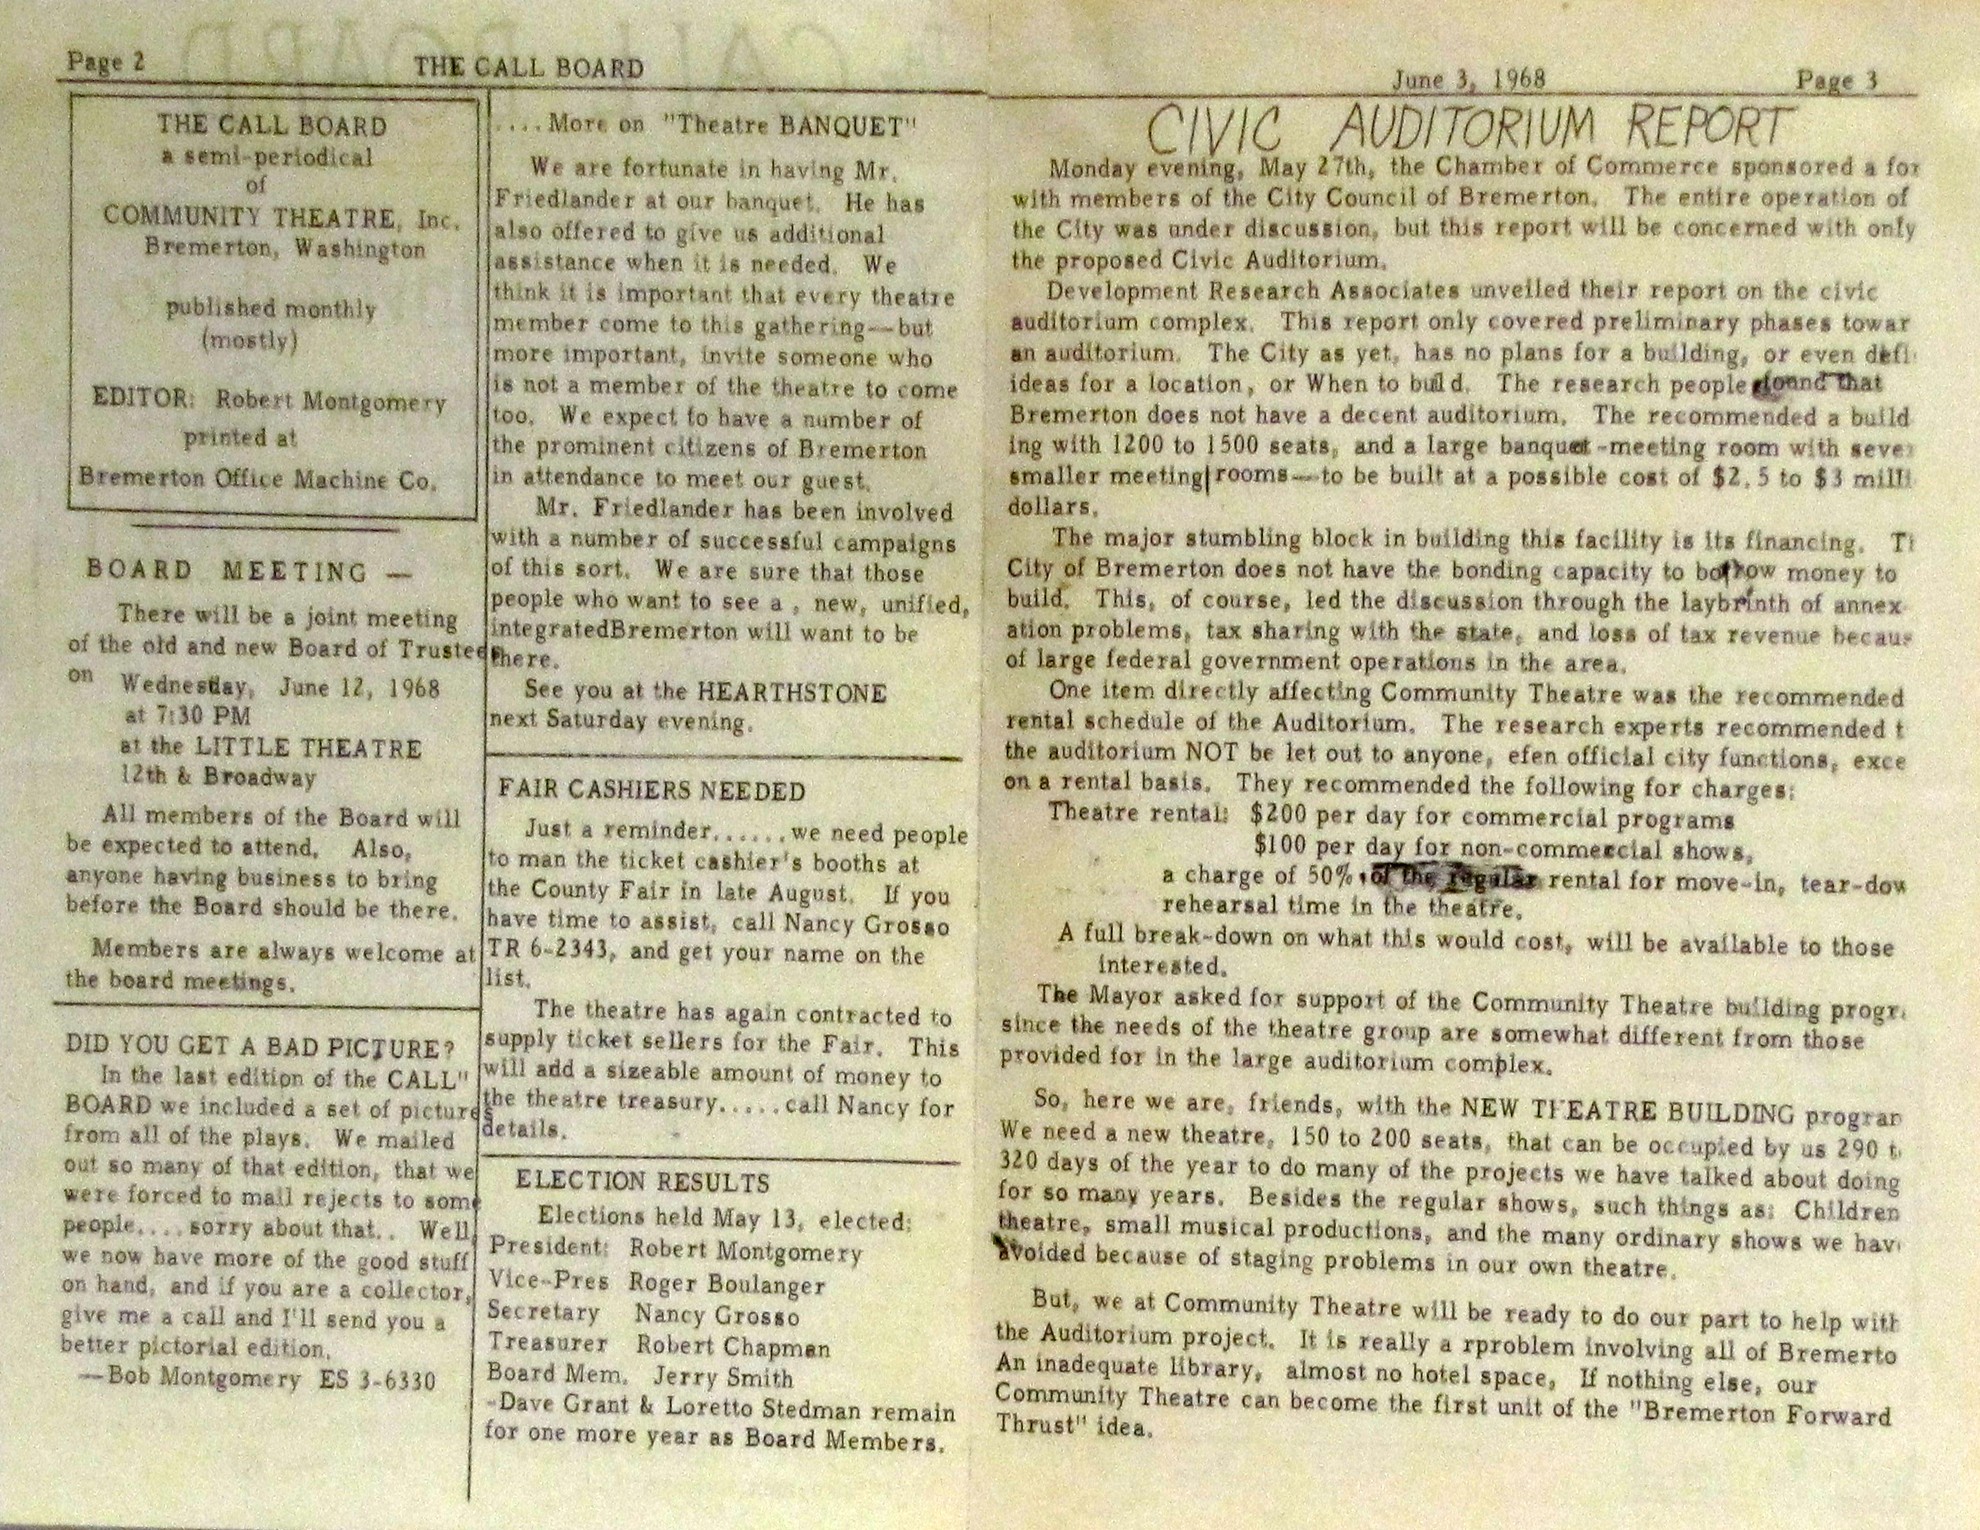 Page 2
THE CALL BOARD
THE CALL BOARD
a semi-periodical
of
COMMUNITY THEATRE, Inc.
Bremerton, Washington
published monthly
(mostly)
EDITOR: Robert Montgomery
printed at
Bremerton Office Machine Co.
BOARD MEETING —
There will be a joint meeting
of the old and new Board of Trustees
on
Wednesday, June 12, 1968
at 7:30 PM
at the LITTLE THEATRE
12th & Broadway
All members of the Board will
be expected to attend. Also,
anyone having business to bring
before the Board should be there.
Members are always welcome at
the board meetings.
DID YOU GET A BAD PICTURE?
In the last edition of the CALL"
BOARD we included a set of pictures
from all of the plays. We mailed
out so many of that edition, that we
were forced to mail rejects to some
people.... sorry about that.. Well,
we now have more of the good stuff
on hand, and if you are a collector,
give me a call and I'll send you a
better pictorial edition.
—Bob Montgomery ES 3-6330
....More on "Theatre BANQUET"
We are fortunate in having Mr.
Friedlander at our banquet. He has
also offered to give us additional
assistance when it is needed. We
think it is important that every theatre
member come to this gathering—but
more important, invite someone who
is not a member of the theatre to come
too. We expect to have a number of
the prominent citizens of Bremerton
in attendance to meet our guest.
Mr. Friedlander has been involved
with a number of successful campaigns
of this sort. We are sure that those
people who want to see a , new, unified,
integratedBremerton will want to be
there.
See you at the HEARTHSTONE
next Saturday evening.
FAIR CASHIERS NEEDED
Just a reminder......we need people
to man the ticket cashier's booths at
the County Fair in late August. If you
have time to assist, call Nancy Grosso
TR 6-2343, and get your name on the
list.
The theatre has again contracted to
supply ticket sellers for the Fair. This
will add a sizeable amount of money to
the theatre treasury.....call Nancy for
details.
ELECTION RESULTS
Elections held May 13, elected:
President: Robert Montgomery
Vice-Pres Roger Boulanger
Secretary Nancy Grosso
Treasurer Robert Chapman
Board Mem. Jerry Smith
-Dave Grant & Loretto Stedman remain
for one more year as Board Members.
June 3, 1968
Page 3
CIVIC AUDITORIUM REPORT
Monday evening, May 27th, the Chamber of Commerce sponsored a for
with members of the City Council of Bremerton. The entire operation of
the City was under discussion, but this report will be concerned with only
the proposed Civic Auditorium.
Development Research Associates unveiled their report on the civic
auditorium complex. This report only covered preliminary phases towar
an auditorium. The City as yet, has no plans for a building, or even defi
ideas for a location, or When to build. The research people found that
Bremerton does not have a decent auditorium. The recommended a build
ing with 1200 to 1500 seats, and a large banquet-meeting room with seve
smaller meeting rooms—to be built at a possible cost of $2.5 to $3 milli
dollars.
The major stumbling block in building this facility is its financing. T
City of Bremerton does not have the bonding capacity to borrow money to
build. This, of course, led the discussion through the laybrinth of annex
ation problems, tax sharing with the state, and loss of tax revenue becau
of large federal government operations in the area.
One item directly affecting Community Theatre was the recommended
rental schedule of the Auditorium. The research experts recommended t
the auditorium NOT be let out to anyone, efen official city functions, exce
on a rental basis. They recommended the following for charges:
Theatre rental: $200 per day for commercial programs
$100 per day for non-commercial shows,
a charge of 50% of the regular rental for move-in, tear-dow
rehearsal time in the theatre.
A full break-down on what this would cost, will be available to those
interested.
The Mayor asked for support of the Community Theatre building progr
since the needs of the theatre group are somewhat different from those
provided for in the large auditorium complex.
So, here we are, friends, with the NEW THEATRE BUILDING program
We need a new theatre, 150 to 200 seats, that can be occupied by us 290 t
320 days of the year to do many of the projects we have talked about doing
for so many years. Besides the regular shows, such things as: Children
theatre, small musical productions, and the many ordinary shows we hav
avoided because of staging problems in our own theatre.
But, we at Community Theatre will be ready to do our part to help with
the Auditorium project. It is really a rproblem involving all of Bremerto
An inadequate library, almost no hotel space, If nothing else, our
Community Theatre can become the first unit of the "Bremerton Forward
Thrust" idea.